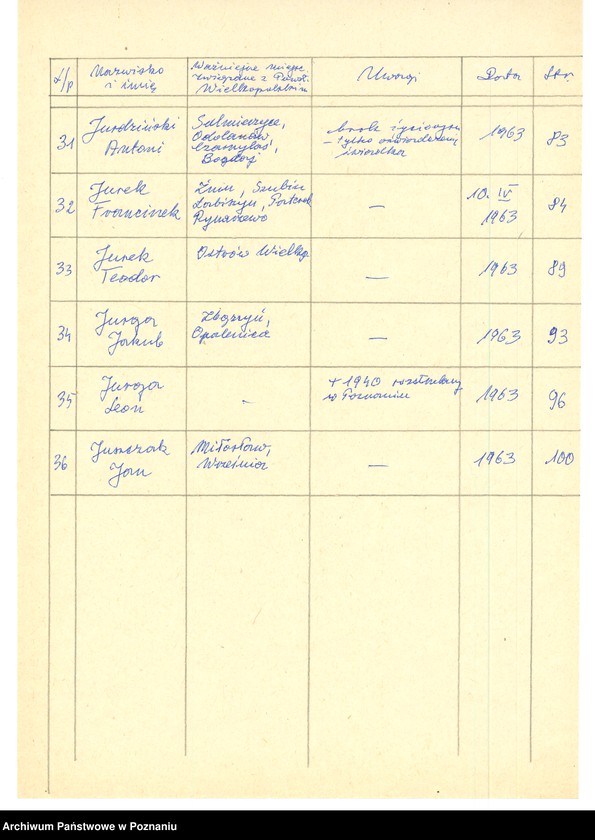 L/p
Nazwisko
i imię
Ważniejsze miejsc.
związane z Powst.
Wielkopolskim
Uwagi
Data
Str.
31
Jurdziński
Antoni
Sulmierzyce,
Odolanów,
Czarnylas,
Bogdaj
brak życiorysu
– tylko oświadczenie
świadka
1963
83
32
Jurek
Franciszek
Żnin, Szubin
Łabiszyn,
Rynarzewo
—
10. IV
1963
84
33
Jurek
Teodor
Ostrów Wielkp.
—
1963
89
34
Jurga
Jakub
Zbąszyń,
Opalenica
—
1963
93
35
Jurga
Leon
-
+ 1940 rozstrzelany
w Poznaniu
1963
96
36
Juszczak
Jan
Miłosław,
Września
—
1963
100
Archiwum Państwowe w Poznaniu